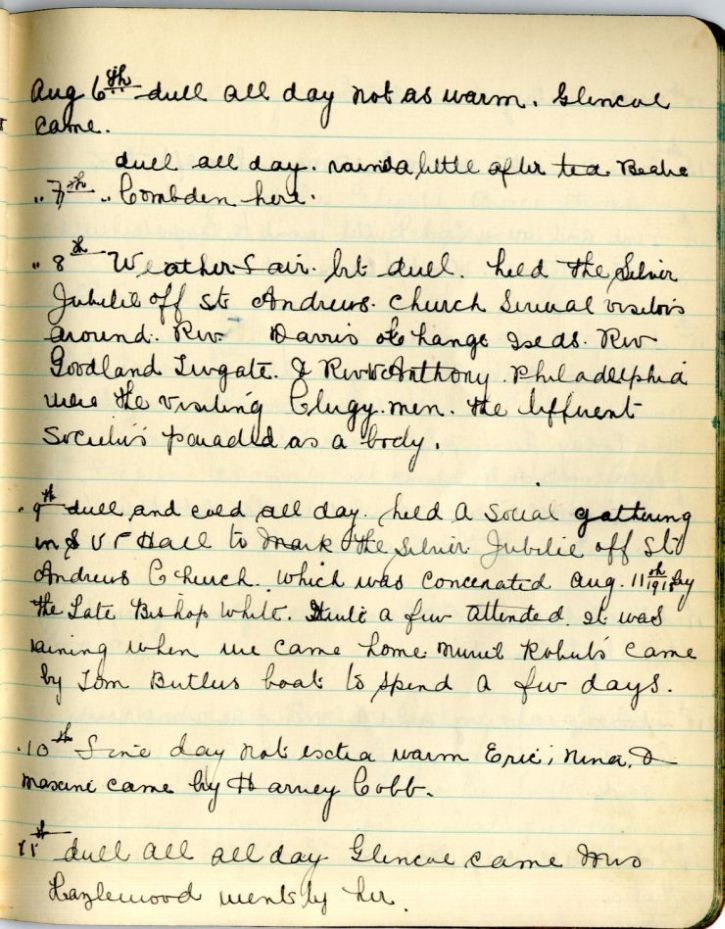 Aug 6th dull all day not as warm. Glencoe
came.
dull all day. rain a little after tea. Beatie
" 7th " Combden here.
" 8th Weather fair. but dull. held the Silver
Jubilie off St Andrews. Church Several visitors
around. Rev Darris of Change Iseds. Rev
Goodland Twgate. & Rev Anthony. Philadelphia
were the visiting Clergy.men. the different
Societies paraded as a body.
. 9th dull and cold all day. held a social gathering
in S U F Hall to mark the Silver Jubilie off St
Andrews Church. which was concenated Aug. 11th by
the Late Bishop White. Quite a few attended. it was
raining when we came home Muriel Roberts came
by Tom Butlers boat to spend a few days.
. 10th Fine day not extra warm Eric, Nina, &
Maxine came by Harvey Cobb.
11th dull all all day Glencoe came Mrs
Hazlewood went by her.